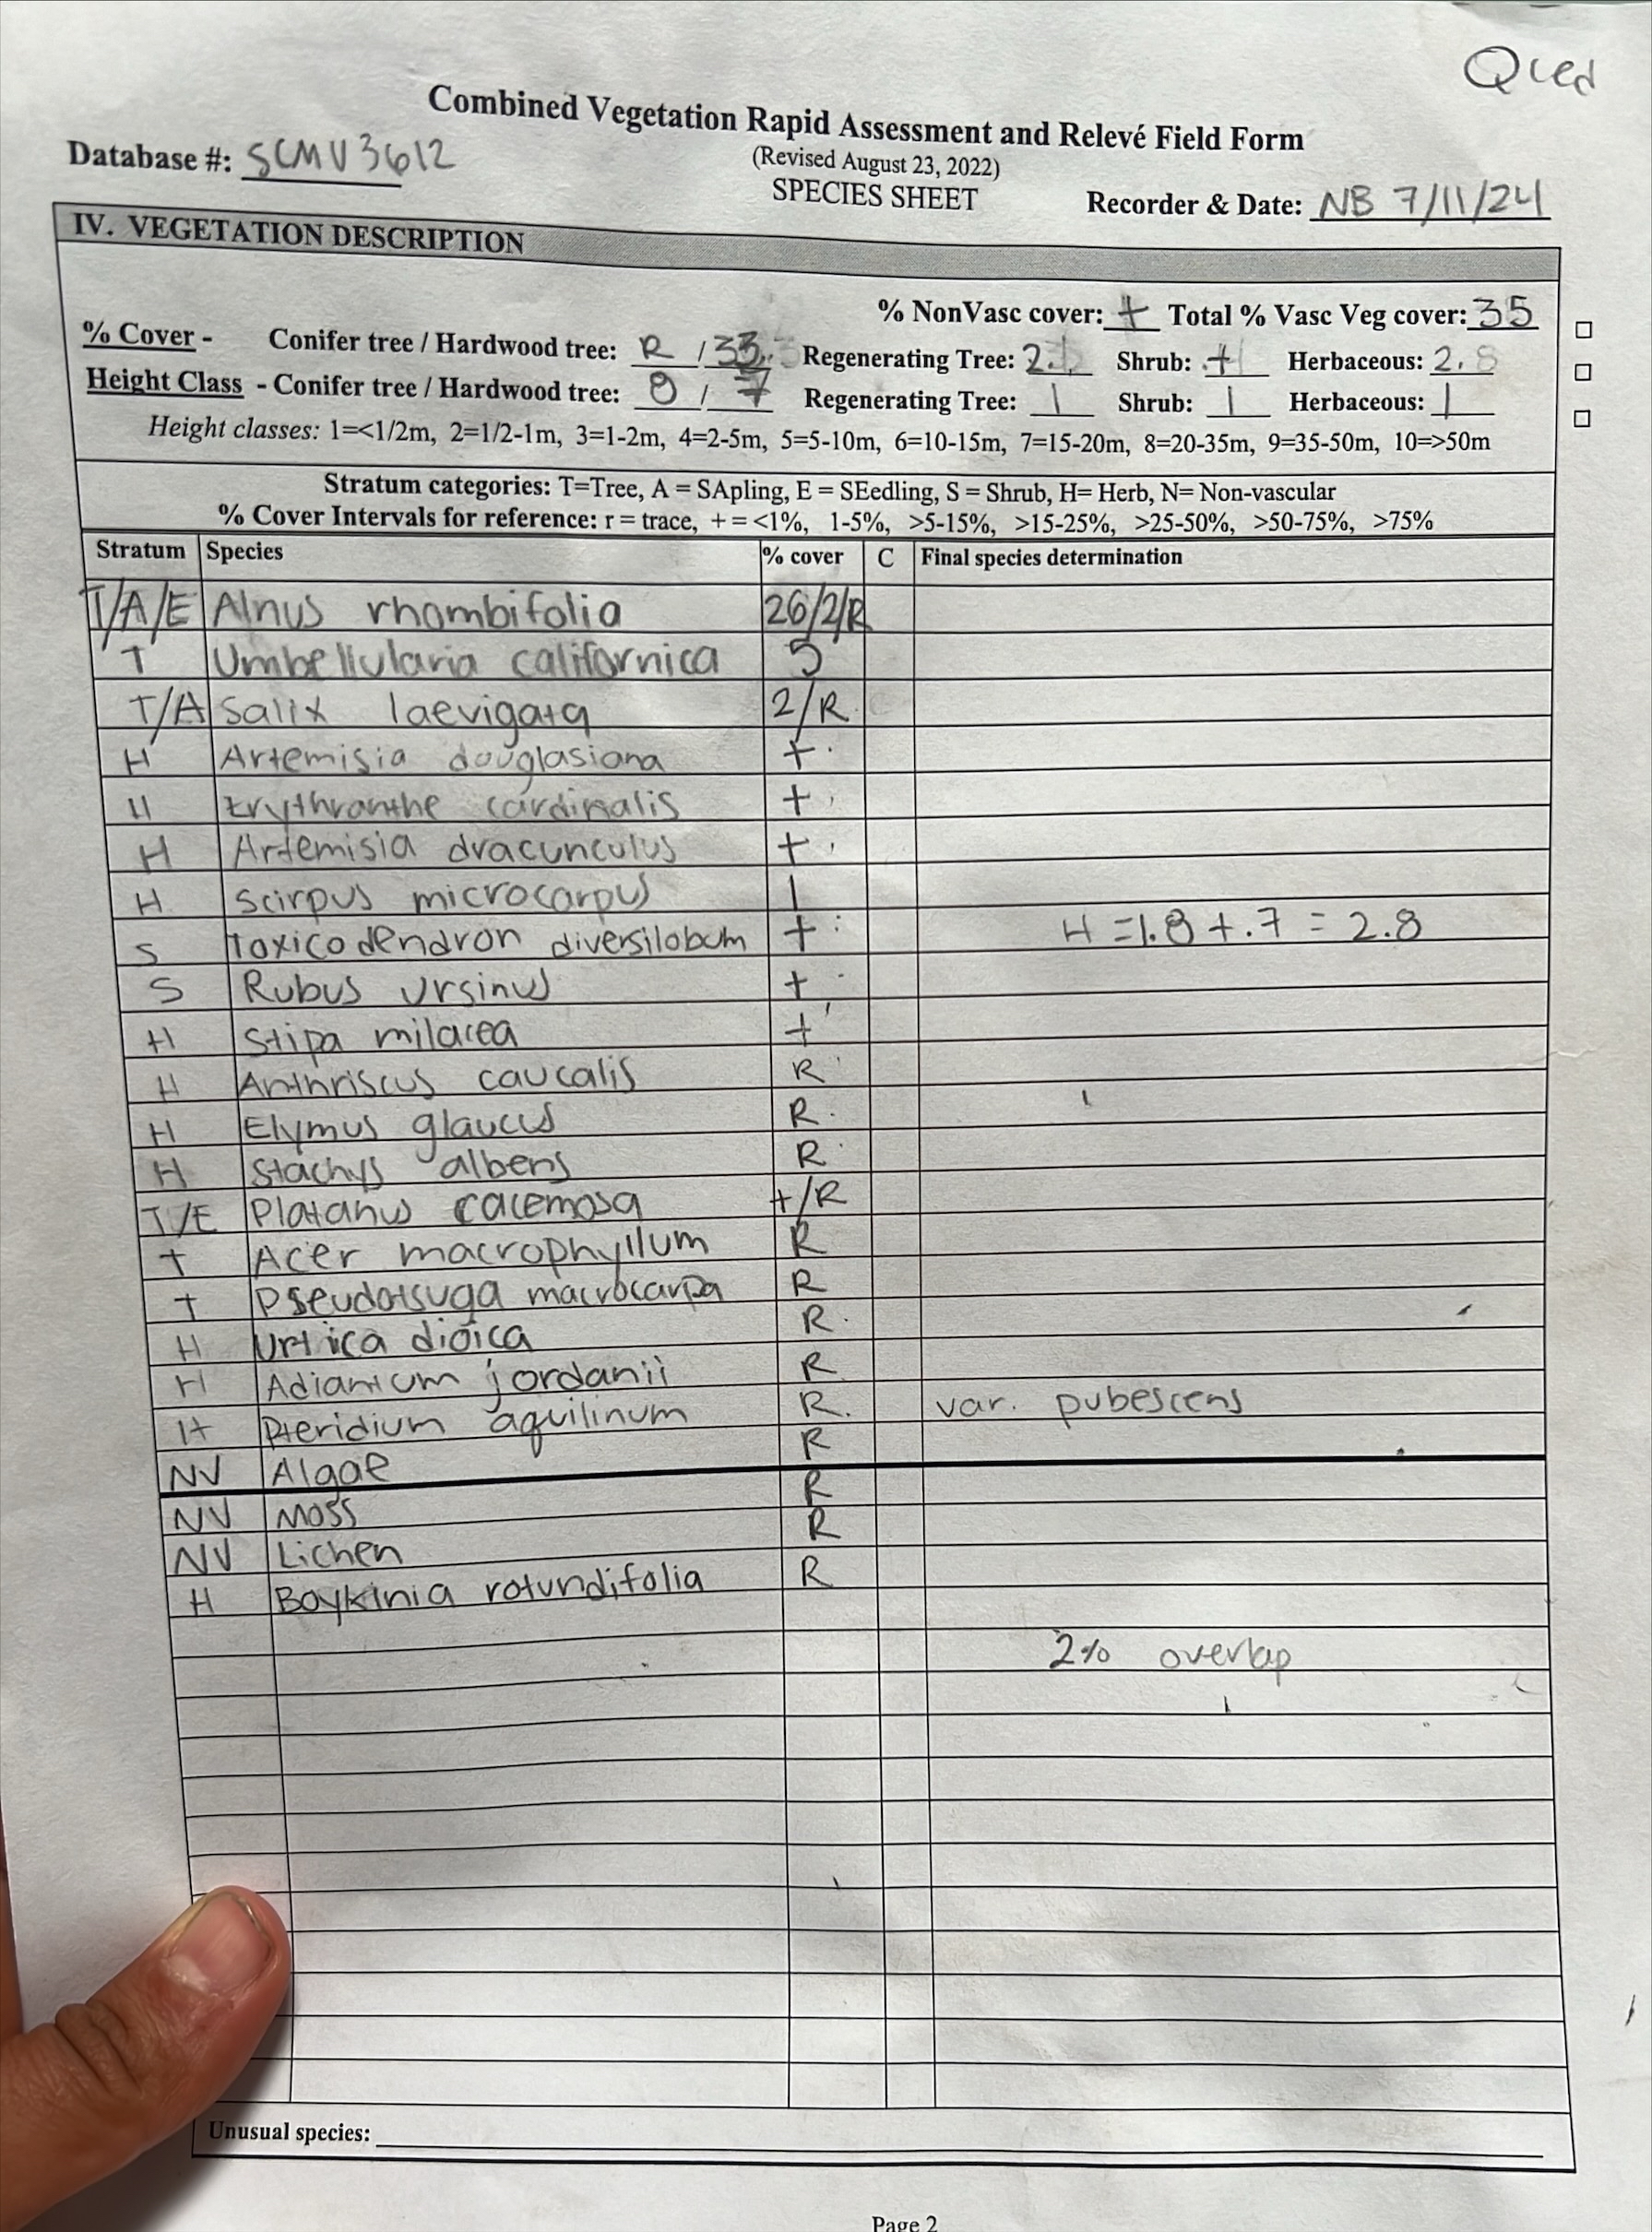 QCed
Combined Vegetation Rapid Assessment and Relevé Field Form
(Revised August 23, 2022)
Database #: SCMV3612
SPECIES SHEET
Recorder & Date: NB 7/11/24
IV. VEGETATION DESCRIPTION
% NonVasc cover: + Total % Vasc Veg cover: 35
% Cover - Conifer tree / Hardwood tree: R / 33. Regenerating Tree: 2. Shrub: + Herbaceous: 2.8
Height Class - Conifer tree / Hardwood tree: 8 / 7 Regenerating Tree: 1 Shrub: 1 Herbaceous: 1
Height classes: 1=<1/2m, 2=1/2-1m, 3=1-2m, 4=2-5m, 5=5-10m, 6=10-15m, 7=15-20m, 8=20-35m, 9=35-50m, 10=>50m
Stratum categories: T=Tree, A = SApling, E = SEedling, S = Shrub, H= Herb, N= Non-vascular
% Cover Intervals for reference: r = trace, + = <1%, 1-5%, >5-15%, >15-25%, >25-50%, >50-75%, >75%
Stratum Species % cover C Final species determination
T/A/E Alnus rhombifolia 26/2/R
T Umbellularia californica 5
T/A Salix laevigata 2/R
H Artemisia douglasiana +
H Erythranthe cardinalis +
H Artemisia dracunculus +
H Scirpus microcarpus 1
S Toxicodendron diversilobum + H = 1.8 + .7 = 2.8
S Rubus ursinus +
H Stipa milacea +
H Anthriscus caucalis R
H Elymus glaucus R
H Stachys albens R
T/E Platanus racemosa +/R
T Acer macrophyllum R
T Pseudotsuga macrocarpa R
H Urtica dioica R
H Adiantum jordanii R
H Pteridium aquilinum R. var. pubescens
NV Algae R
NV Moss R
NV Lichen R
H Boykinia rotundifolia R
2% overlap
Unusual species:
Page 2